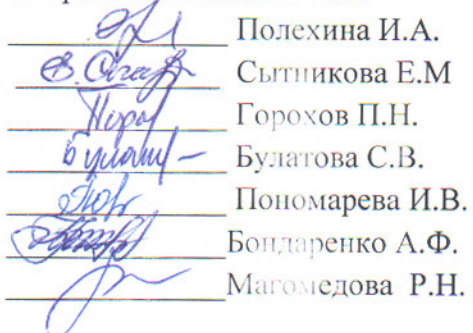 Полехина И.А.
Сытникова Е.М
Горохов П.Н.
Булатова С.В.
Пономарева И.В.
Бондаренко А.Ф.
Магомедова Р.Н.